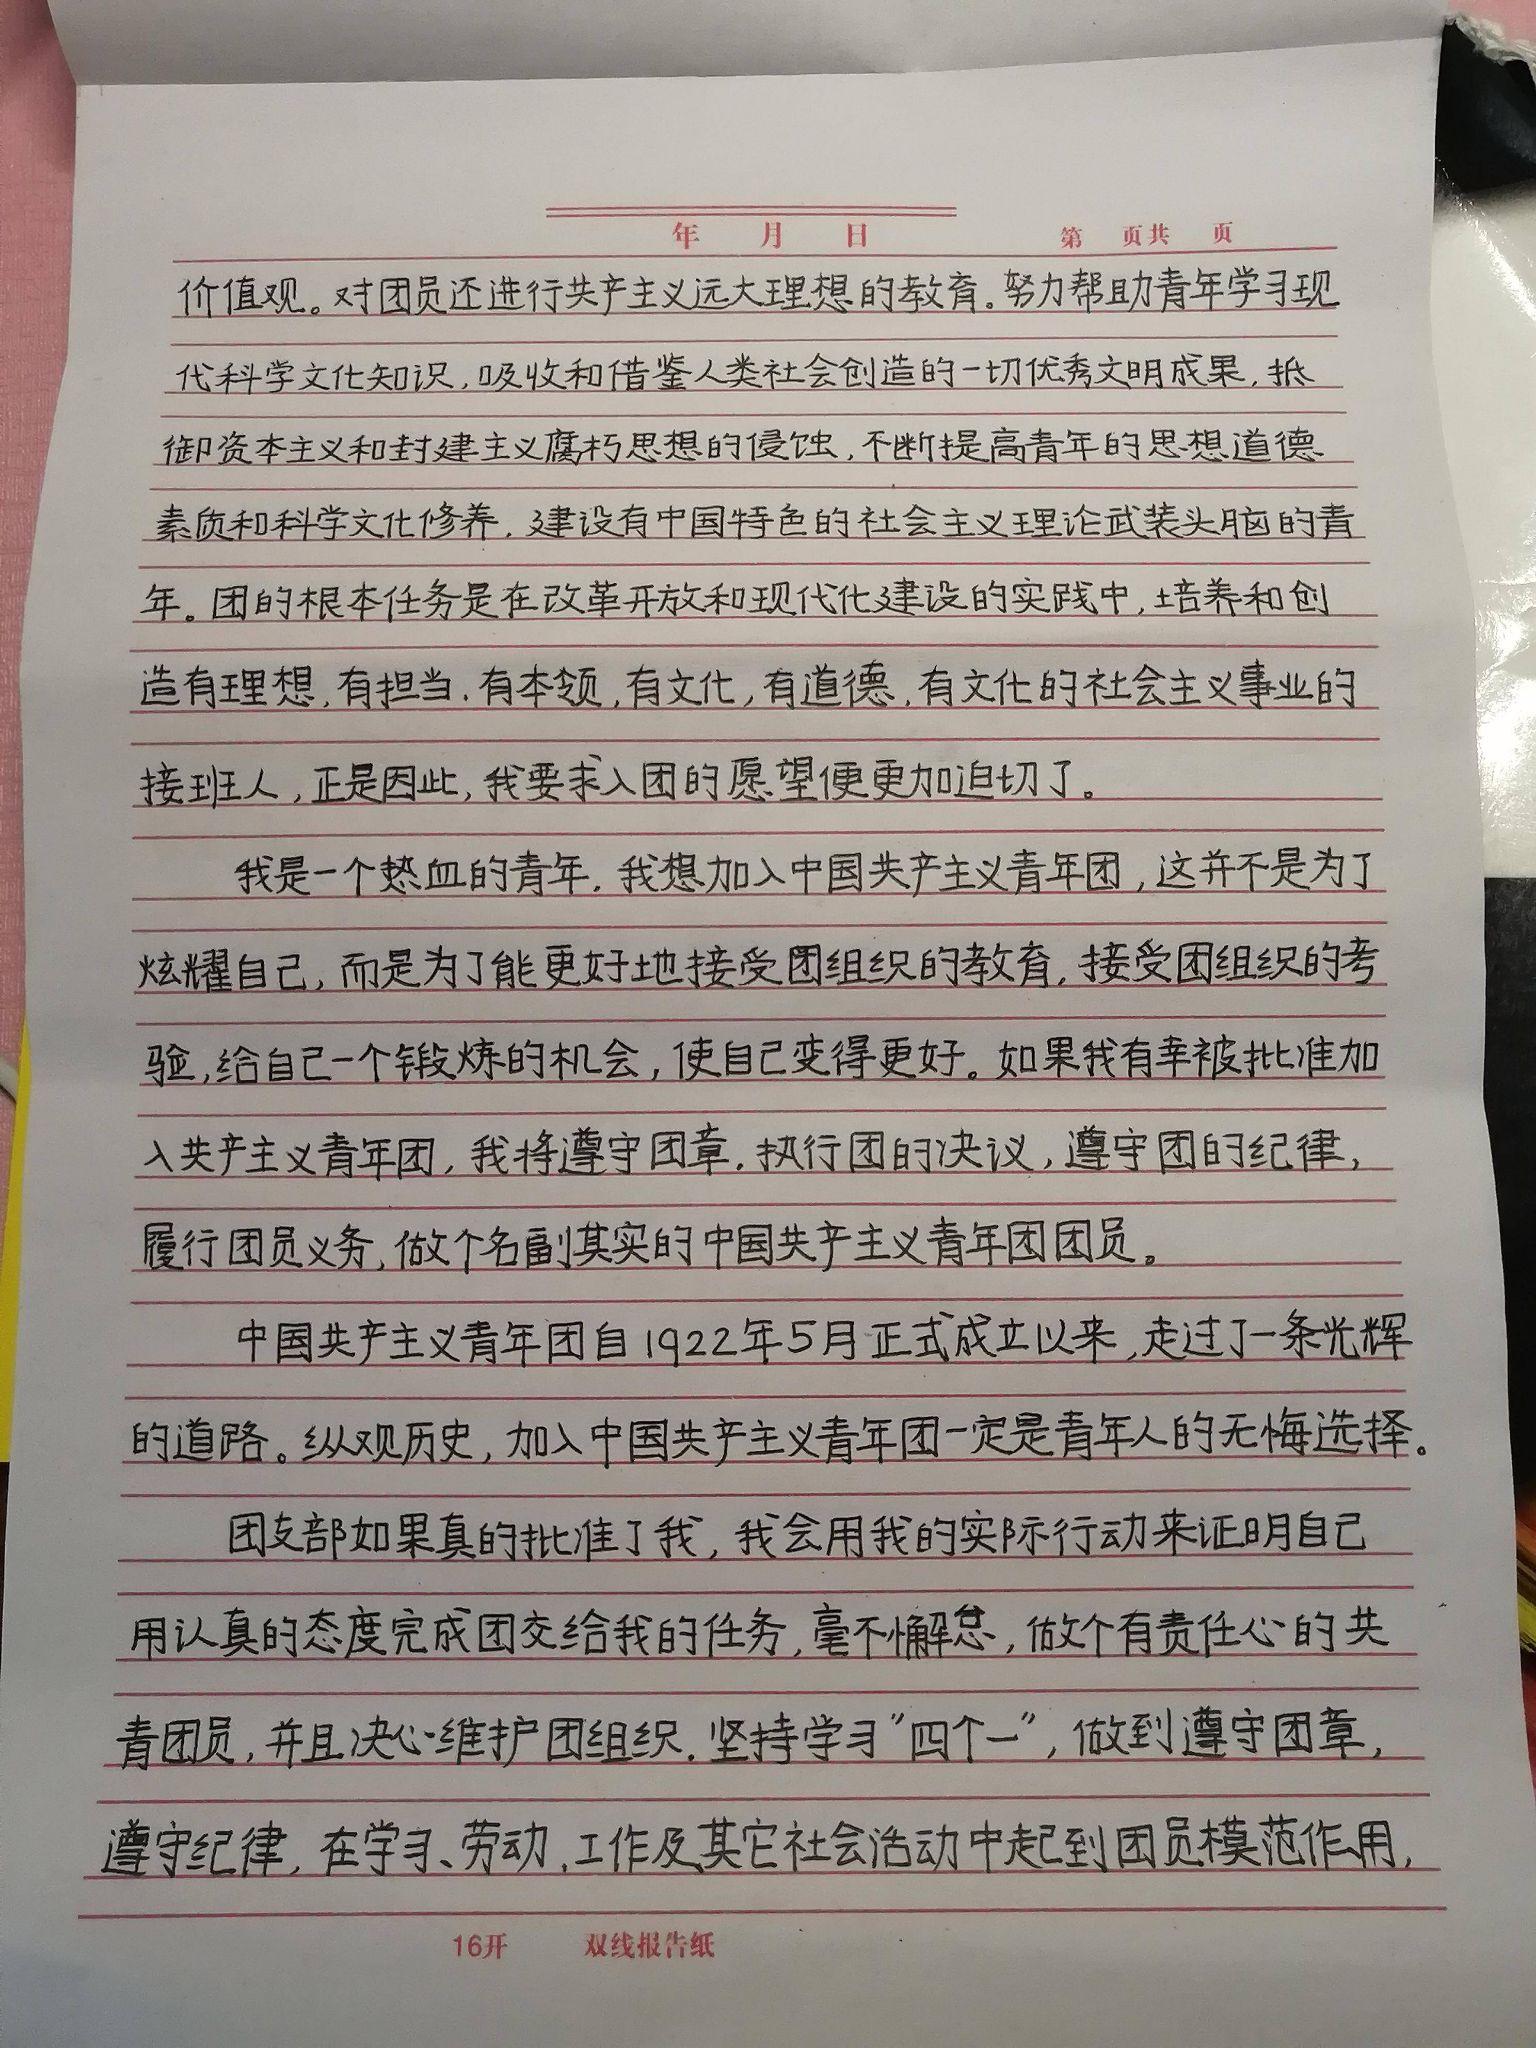 年 月 日 第 页共 页
价值观。对团员还进行共产主义远大理想的教育。努力帮助青年学习现
代科学文化知识,吸收和借鉴人类社会创造的一切优秀文明成果,抵
御资本主义和封建主义腐朽思想的侵蚀,不断提高青年的思想道德
素质和科学文化修养,建设有中国特色的社会主义理论武装头脑的青
年。团的根本任务是在改革开放和现代化建设的实践中,培养和创
造有理想,有担当,有本领,有文化,有道德,有文化的社会主义事业的
接班人,正是因此,我要求入团的愿望便更加迫切了。
我是一个热血的青年,我想加入中国共产主义青年团,这并不是为了
炫耀自己,而是为了能更好地接受团组织的教育,接受团组织的考
验,给自己一个锻炼的机会,使自己变得更好。如果我有幸被批准加
入共产主义青年团,我将遵守团章,执行团的决议,遵守团的纪律,
履行团员义务,做个名副其实的中国共产主义青年团团员。
中国共产主义青年团自1922年5月正式成立以来,走过了一条光辉
的道路。纵观历史,加入中国共产主义青年团一定是青年人的无悔选择。
团支部如果真的批准了我,我会用我的实际行动来证明自己
用认真的态度完成团交给我的任务,毫不懈怠,做个有责任心的共
青团员,并且决心维护团组织,坚持学习"四个一",做到遵守团章,
遵守纪律,在学习、劳动、工作及其它社会活动中起到团员模范作用,
16开 双线报告纸